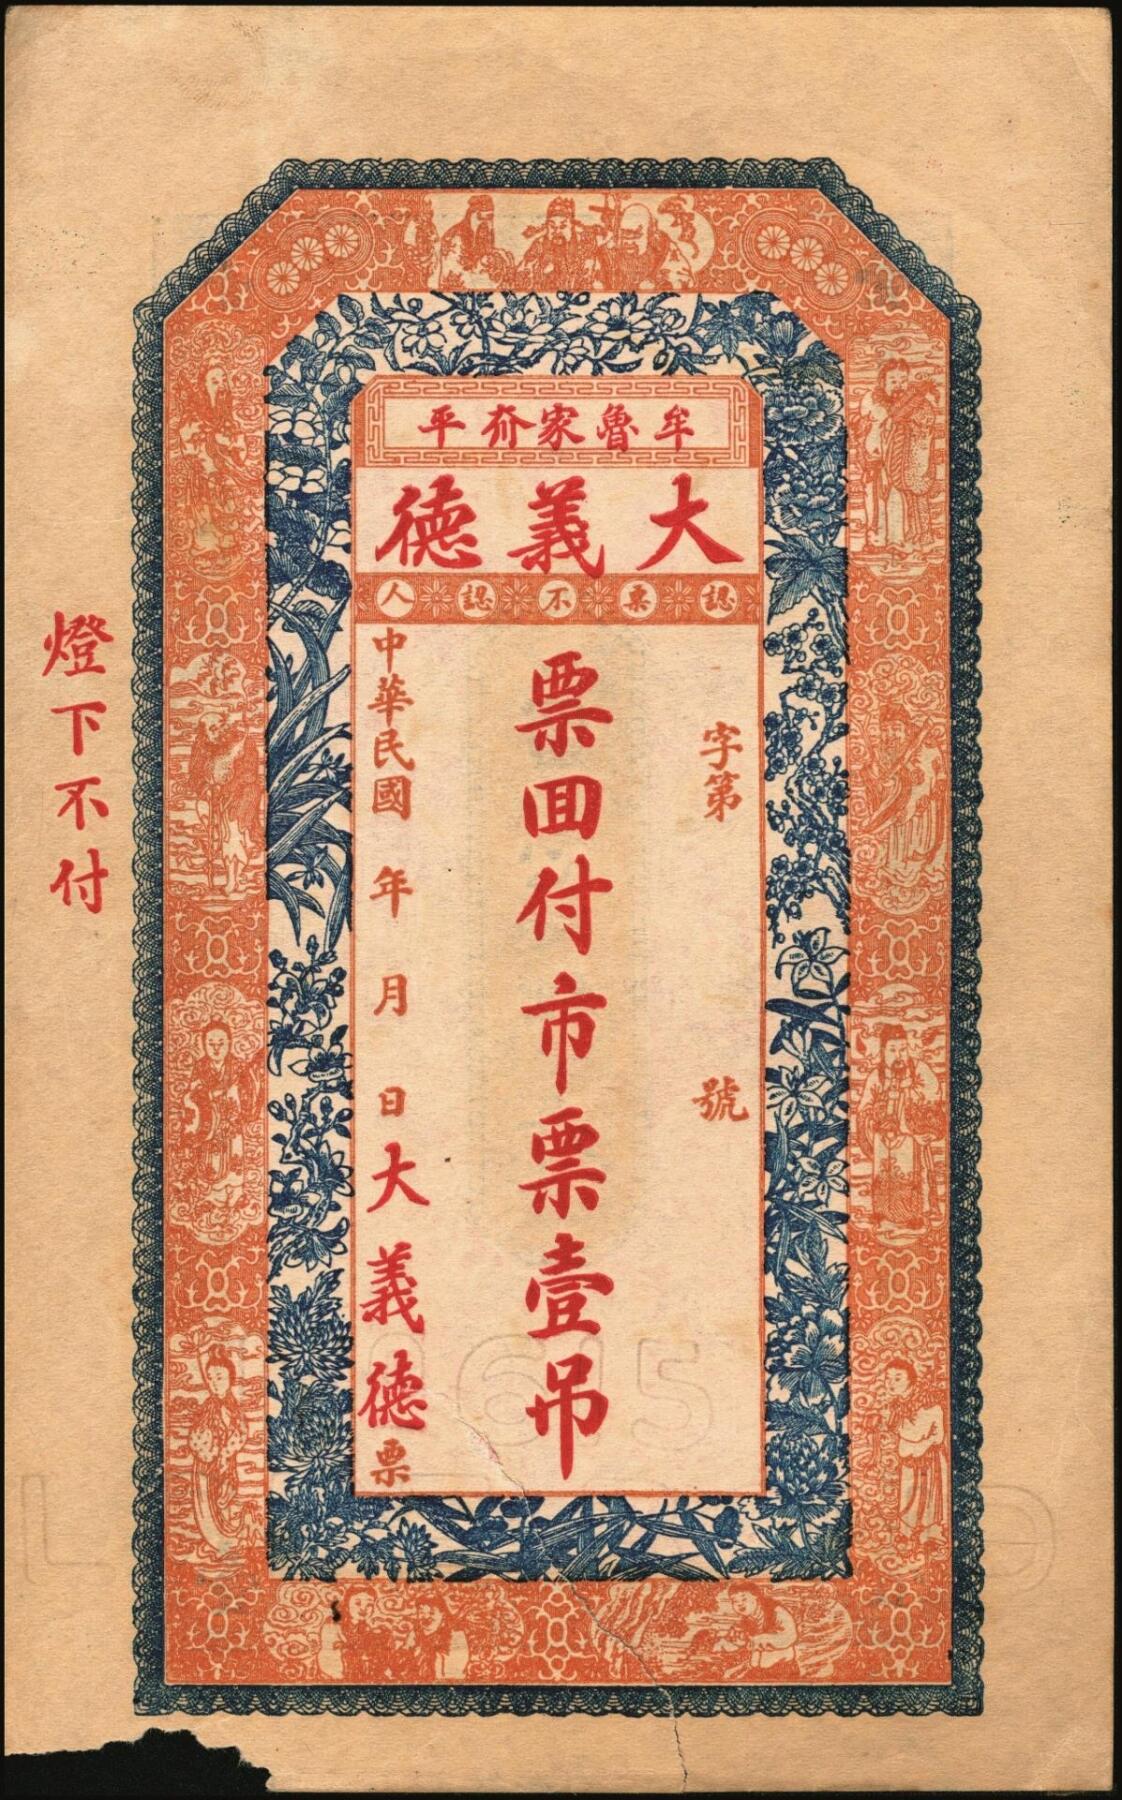 牟魯家夼平
大義德
認票不認人
字第 號
票回付市票壹吊
中華民國 年 月 日大義德票
燈下不付